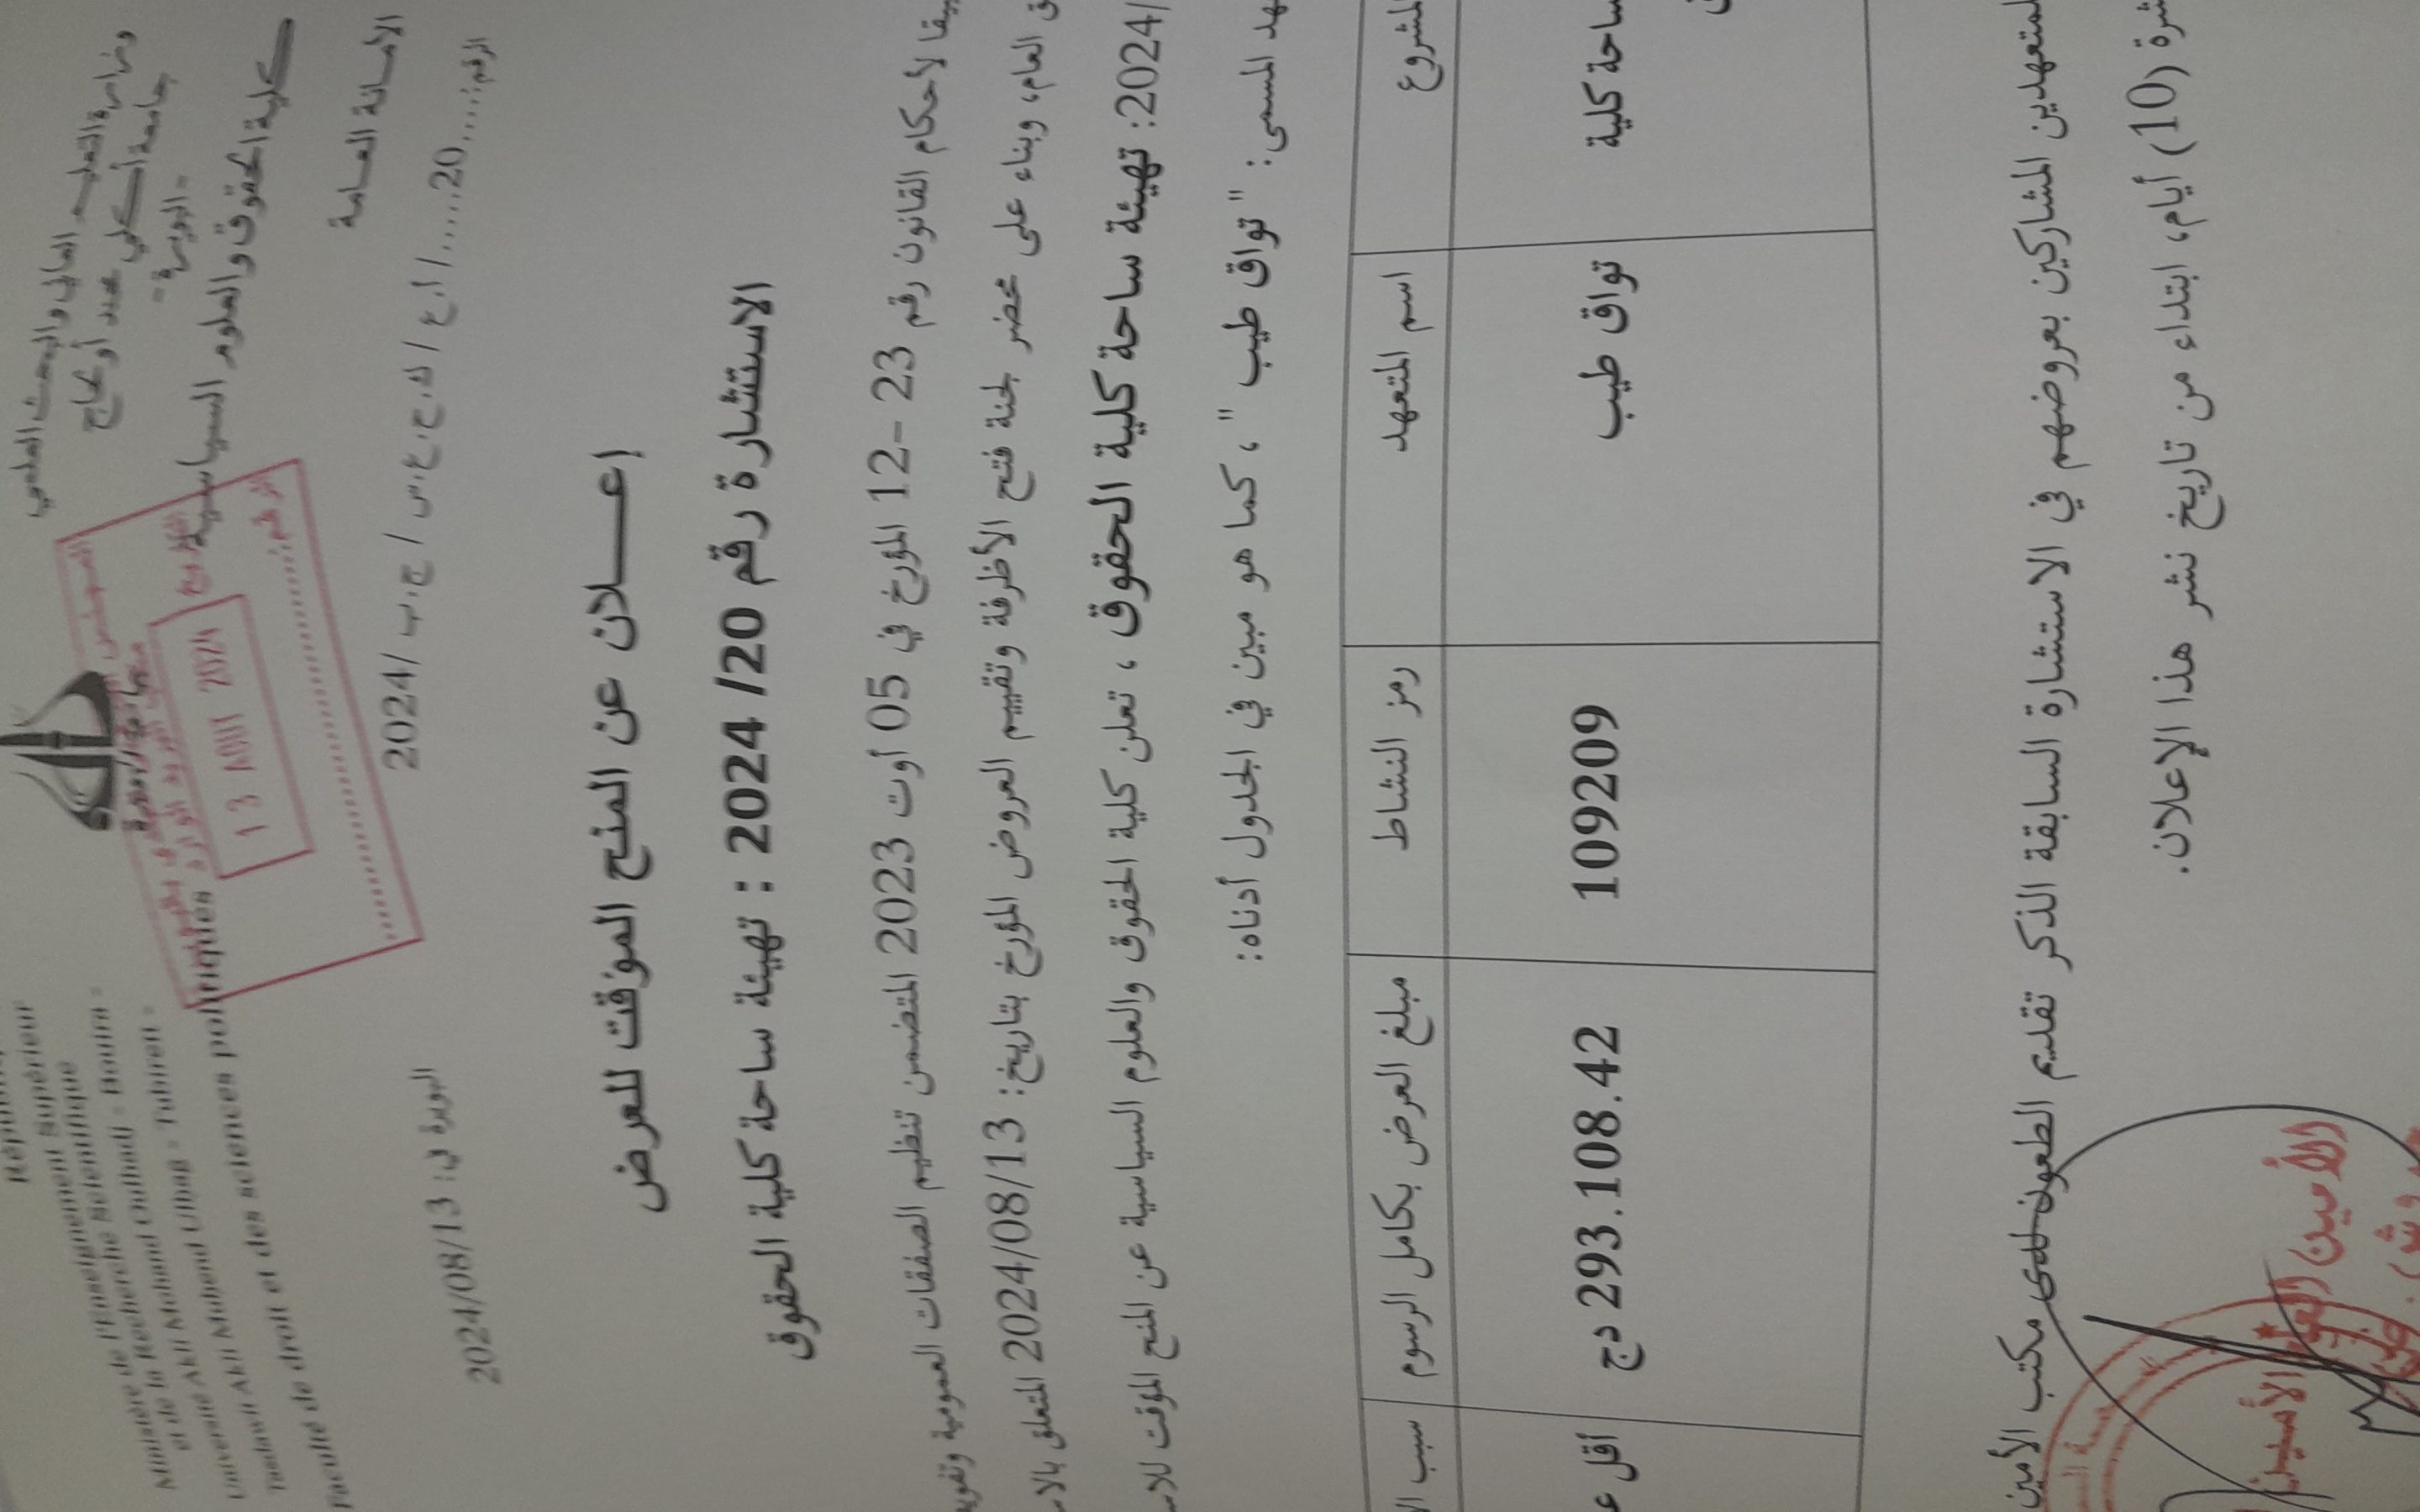 وزارة التعليم العالي والبحث العلمي
جامعة أكلي محند أولحاج
- البويرة -
كلية الحقوق والعلوم السياسية
الأمانة العامة
Supérieur
Ministère de l'Enseignement
et de la Recherche Scientifique
Université Akli Mohand Oulhadj - Bouira -
Tasdawit Akli Muhend Ulḥağ - Tubirett -
Faculté de droit et des sciences politiques
13 AOU 2024
الرقم:......20....../ا.ع/ك.ح.ع.س/ج.ب/2024
البويرة في: 2024/08/13
إعـــلان عن المنح المؤقت للعرض
الاستشارة رقم 20/ 2024 : تهيئة ساحة كلية الحقوق
لأحكام القانون رقم 23 -12 المؤرخ في 05 أوت 2023 المتضمن تنظيم الصفقات العمومية
العام، وبناء على محضر لجنة فتح الأظرفة وتقييم العروض المؤرخ بتاريخ: 2024/08/13 المتعلق
/2024: تهيئة ساحة كلية الحقوق ، تعلن كلية الحقوق والعلوم السياسية عن المنح المؤقت
المسمى: " تواق طيب "، كما هو مبين في الجدول أدناه:
المشروع اسم المتعهد رمز النشاط مبلغ العرض بكامل الرسوم سبب
ساحة كلية تواق طيب 109209 293.108.42 دج أقل
المتعهدين المشاركين بعروضهم في الاستشارة السابقة الذكر تقديم الطعون لدى مكتب الأمين
(10) أيام، ابتداء من تاريخ نشر هذا الإعلان.
الأمين العام